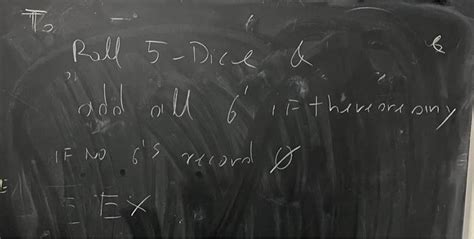 To
Roll 5-Dice &
add all 6' IF there are any
IF NO 6's record Ø
EX